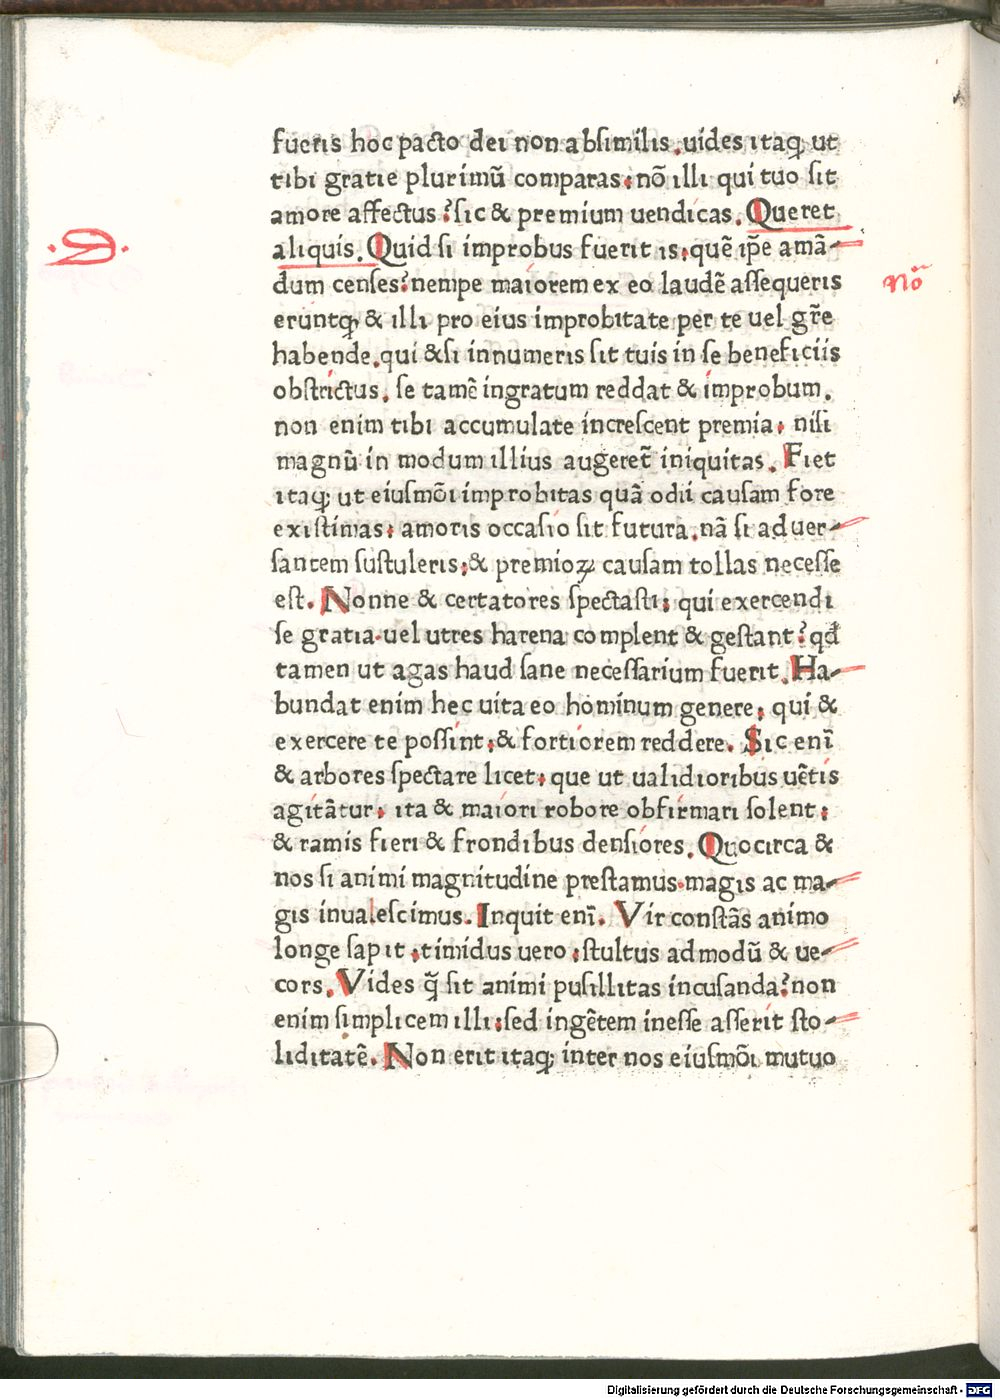 fueris hoc pacto dei non absimilis. uides itaq; ut
tibi gratie plurimū comparas: nō illi qui tuo sit
amore affectus? sic & premium uendicas. Queret
aliquis. Quid si improbus fuerit is: quē ip̄e amā-
dum censes? nempe maiorem ex eo laudē assequeris
eruntq; & illi pro eius improbitate per te uel gr̄e
habende. qui & si innumeris sit tuis in se beneficiis
obstrictus. se tamē ingratum reddat & improbum.
non enim tibi accumulate increscent premia: nisi
magnū in modum illius augeret̄ iniquitas. Fiet
itaq; ut eiusmōi improbitas quā odii causam fore
existimas: amoris occasio sit futura. nā si aduer-
santem sustuleris: & premioꝝ causam tollas necesse
est. Nonne & certatores spectasti: qui exercendi
se gratia. uel utres harena complent & gestant? qđ
tamen ut agas haud sane necessarium fuerit. Ha-
bundat enim hec uita eo hominum genere: qui &
exercere te possint: & fortiorem reddere. Sic enī
& arbores spectare licet: que ut ualidioribus uētis
agitātur: ita & maiori robore obfirmari solent:
& ramis fieri & frondibus densiores. Quocirca &
nos si animi magnitudine prestamus. magis ac ma-
gis inualescimus. Inquit enī. Vir constās animo
longe sapit: timidus uero: stultus admodū & ue-
cors. Vides q̄ sit animi pusillitas incusanda? non
enim simplicem illi: sed ingētem inesse asserit sto-
liditatē. Non erit itaq; inter nos eiusmōi mutuo
Nō
Digitalisierung gefördert durch die Deutsche Forschungsgemeinschaft - DFG